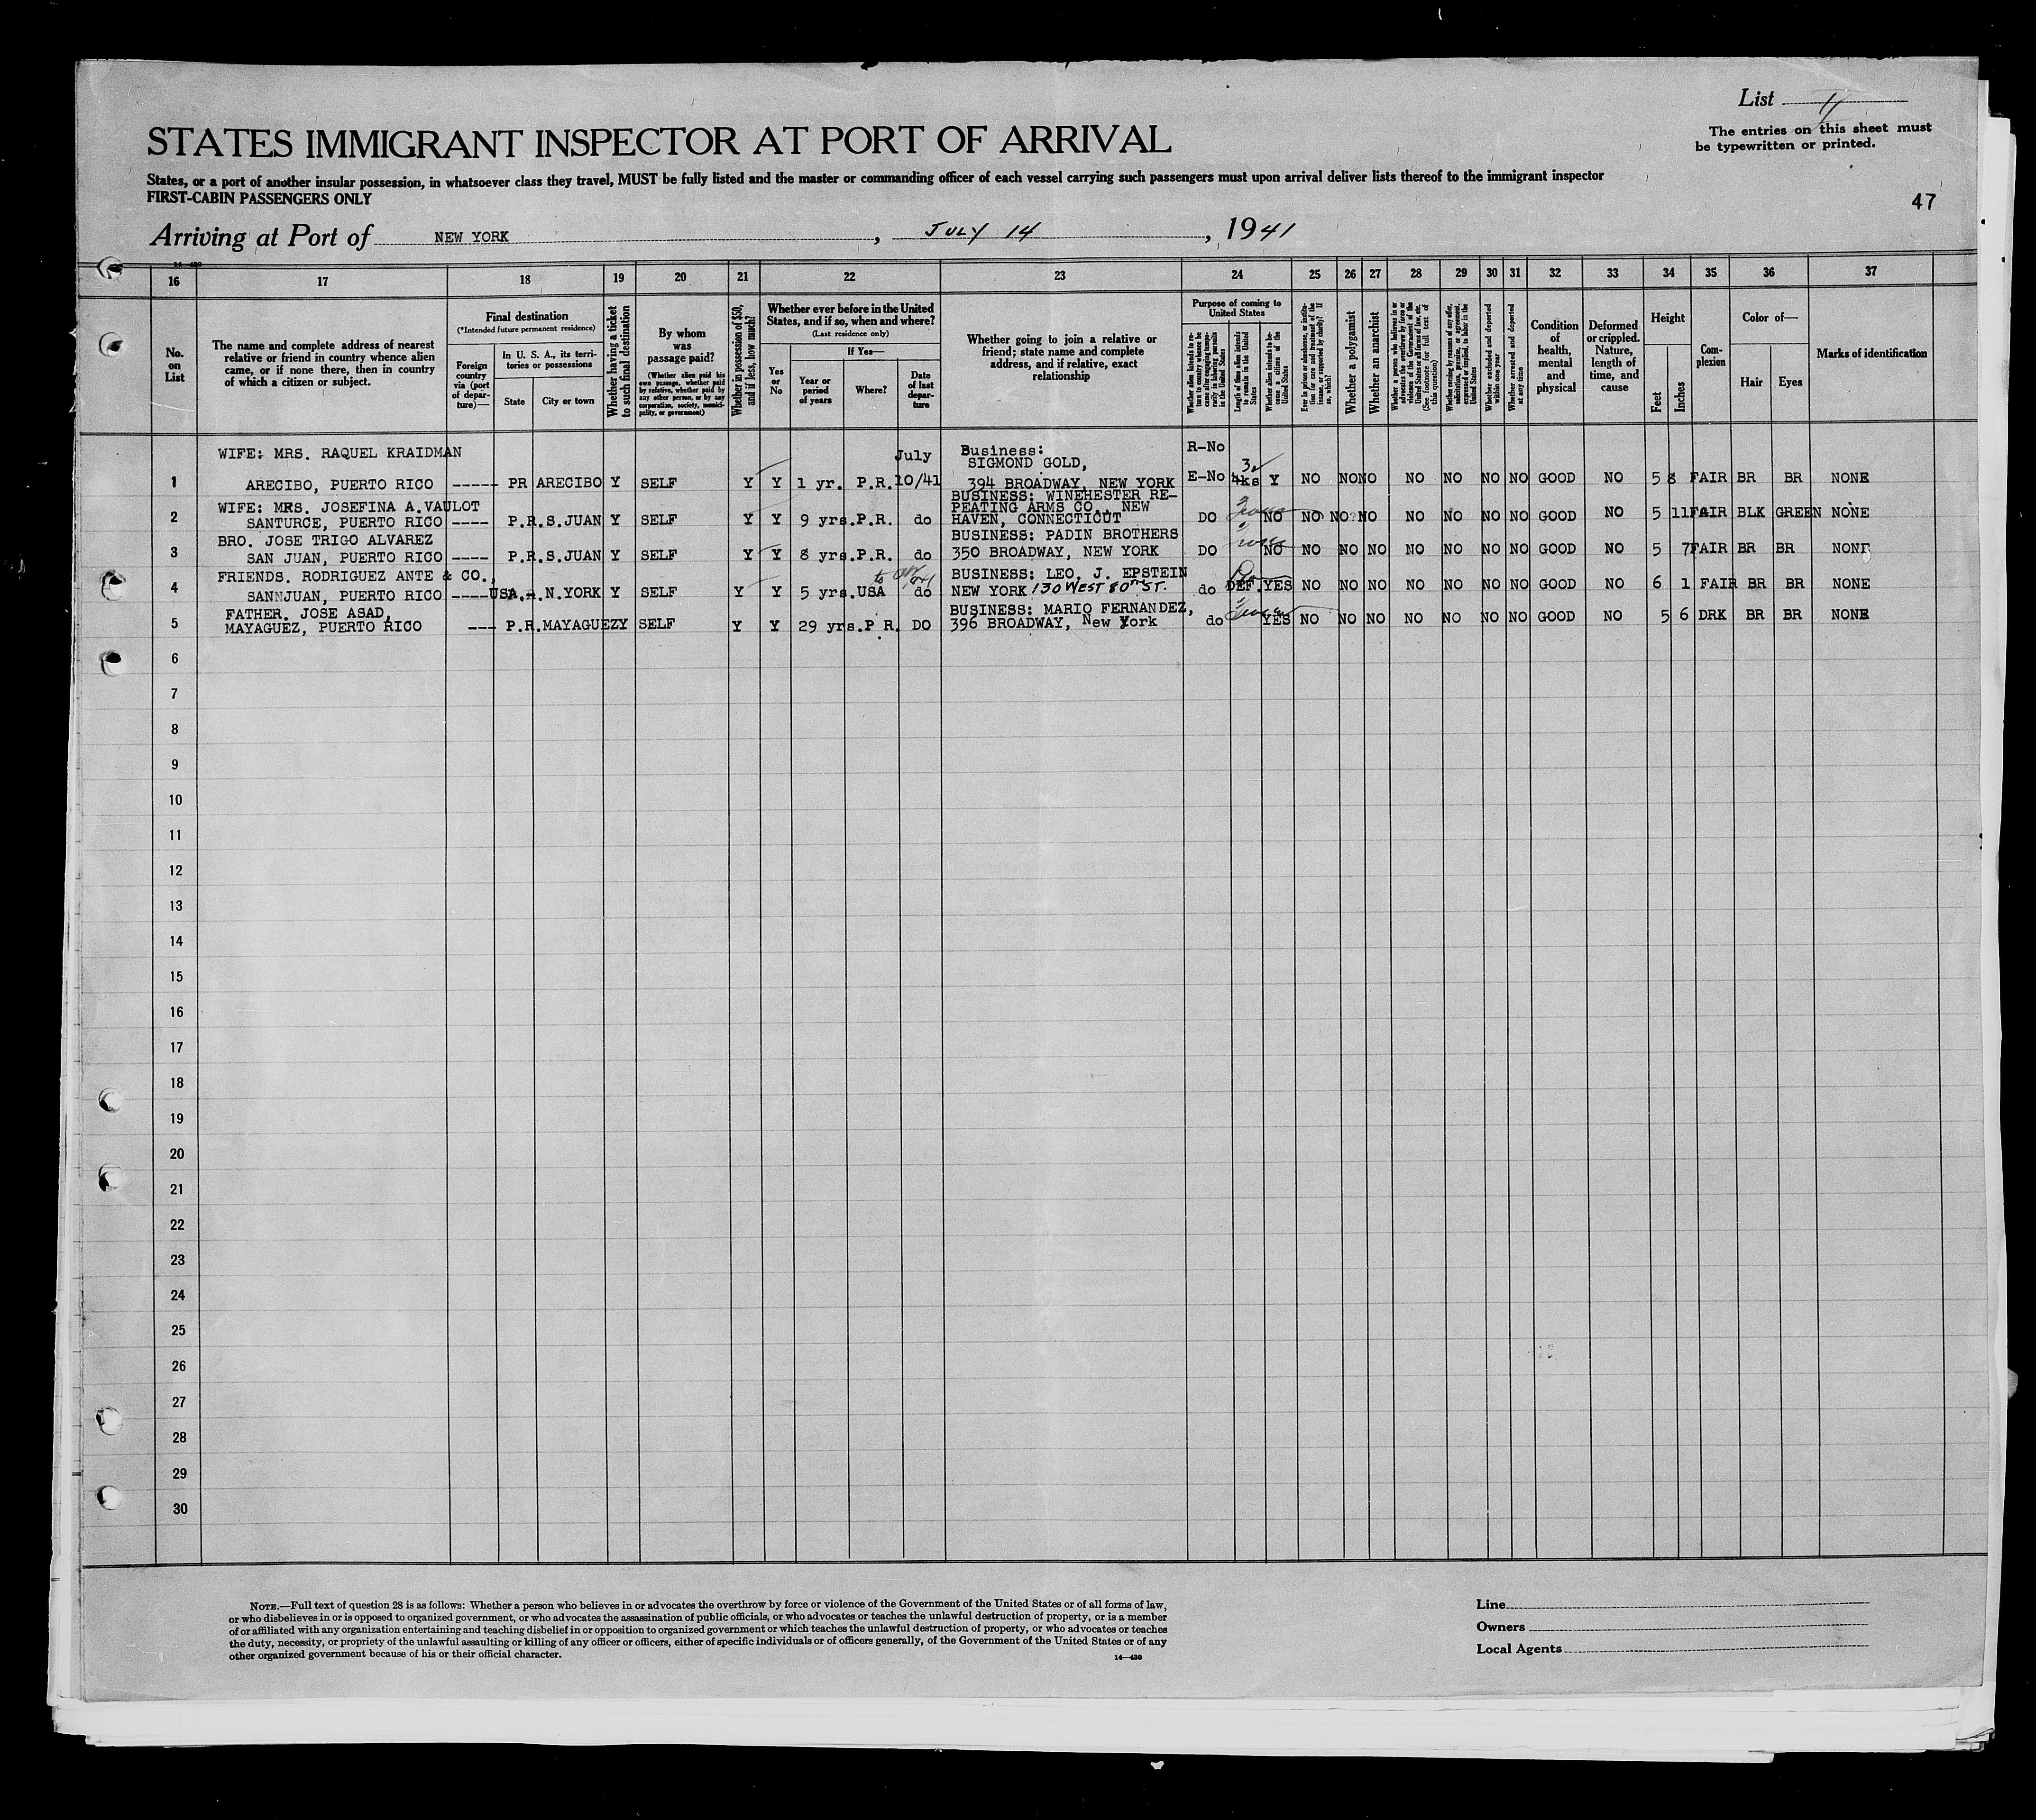 List
The entries on this sheet must
be typewritten or printed.
STATES IMMIGRANT INSPECTOR AT PORT OF ARRIVAL
States, or a port of another insular possession, in whatsoever class they travel, MUST be fully listed and the master or commanding officer of each vessel carrying such passengers must upon arrival deliver lists thereof to the immigrant inspector
FIRST-CABIN PASSENGERS ONLY
47
Arriving at Port of NEW YORK, JULY 14, 1941
16 17 18 19 20 21 22 23 24 25 26 27 28 29 30 31 32 33 34 35 36 37
No. on List
The name and complete address of nearest relative or friend in country whence alien came, or if none there, then in country of which a citizen or subject.
Final destination
(*Intended future permanent residence)
Foreign country via (port of departure)—
In U. S. A., its territories or possessions
State
City or town
Whether having a ticket to such final destination
By whom was passage paid?
(Whether alien paid his own passage, whether paid by relative, whether paid by any other person, or by any corporation, society, municipality, or government)
Whether in possession of $50, and if less, how much?
Whether ever before in the United States, and if so, when and where?
(Last residence only)
If Yes—
Yes or No
Year or period of years
Where?
Date of last departure
Whether going to join a relative or friend; state name and complete address, and if relative, exact relationship
Purpose of coming to United States
Whether alien intends to return to country whence he came after engaging temporarily in laboring pursuits in the United States
Length of time alien intends to remain in the United States
Whether alien intends to become a citizen of the United States
Ever in prison or almshouse, or institution for care and treatment of the insane, or supported by charity? If so, which?
Whether a polygamist
Whether an anarchist
Whether a person who believes in or advocates the overthrow by force or violence of the Government of the United States or all forms of law, etc. (See footnote for full text of this question)
Whether coming by reasons of any offer, solicitation, promise, or agreement, expressed or implied, to labor in the United States
Whether excluded and deported within one year
Whether arrested and deported at any time
Condition of health, mental and physical
Deformed or crippled. Nature, length of time, and cause
Height
Feet
Inches
Complexion
Color of—
Hair
Eyes
Marks of identification
WIFE: MRS. RAQUEL KRAIDMAN July Business: R-No
SIGMOND GOLD,
1 ARECIBO, PUERTO RICO ----- PR ARECIBO Y SELF Y Y 1 yr. P.R. 10/41 394 BROADWAY, NEW YORK E-No Y NO NO NO NO NO NO NO GOOD NO 5 8 FAIR BR BR NONE
WIFE: MRS. JOSEFINA A.VAULOT BUSINESS: WINEHESTER RE-
PEATING ARMS CO., NEW
2 SANTURCE, PUERTO RICO ---- P.R. S.JUAN Y SELF Y Y 9 yrs. P.R. do HAVEN, CONNECTICUT DO NO NO NO NO NO NO NO NO GOOD NO 5 11 FAIR BLK GREEN NONE
BRO. JOSE TRIGO ALVAREZ BUSINESS: PADIN BROTHERS
3 SAN JUAN, PUERTO RICO ---- P.R. S.JUAN Y SELF Y Y 8 yrs. P.R. do 350 BROADWAY, NEW YORK DO NO NO NO NO NO NO NO NO GOOD NO 5 7 FAIR BR BR NONE
FRIENDS. RODRIGUEZ ANTE & CO., BUSINESS: LEO, J. EPSTEIN
4 SANNJUAN, PUERTO RICO ---- USA. N.YORK Y SELF Y Y 5 yrs. USA do NEW YORK 130 WEST 80TH ST. do DEF. YES NO NO NO NO NO NO NO GOOD NO 6 1 FAIR BR BR NONE
FATHER. JOSE ASAD, BUSINESS: MARIO FERNANDEZ,
5 MAYAGUEZ, PUERTO RICO --- P.R. MAYAGUEZ Y SELF Y Y 29 yrs. P R. DO 396 BROADWAY, New York do YES NO NO NO NO NO NO NO GOOD NO 5 6 DRK BR BR NONE
6
7
8
9
10
11
12
13
14
15
16
17
18
19
20
21
22
23
24
25
26
27
28
29
30
NOTE.—Full text of question 28 is as follows: Whether a person who believes in or advocates the overthrow by force or violence of the Government of the United States or of all forms of law,
or who disbelieves in or is opposed to organized government, or who advocates the assassination of public officials, or who advocates or teaches the unlawful destruction of property, or is a member
of or affiliated with any organization entertaining and teaching disbelief in or opposition to organized government or which teaches the unlawful destruction of property, or who advocates or teaches
the duty, necessity, or propriety of the unlawful assaulting or killing of any officer or officers, either of specific individuals or of officers generally, of the Government of the United States or of any
other organized government because of his or their official character.
14—430
Line
Owners
Local Agents